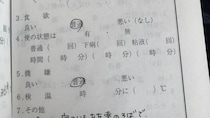 3. 食 欲
良い 普通 悪い(なし)
4. 便の状態は 有・無
普通( 回)下痢( 回)粘液( 回)
時間( 時 分)( 時 分)( 時 分)
5. 機 嫌
良い 普通 悪い
6. 検 温 時 分に( )℃
7. その他